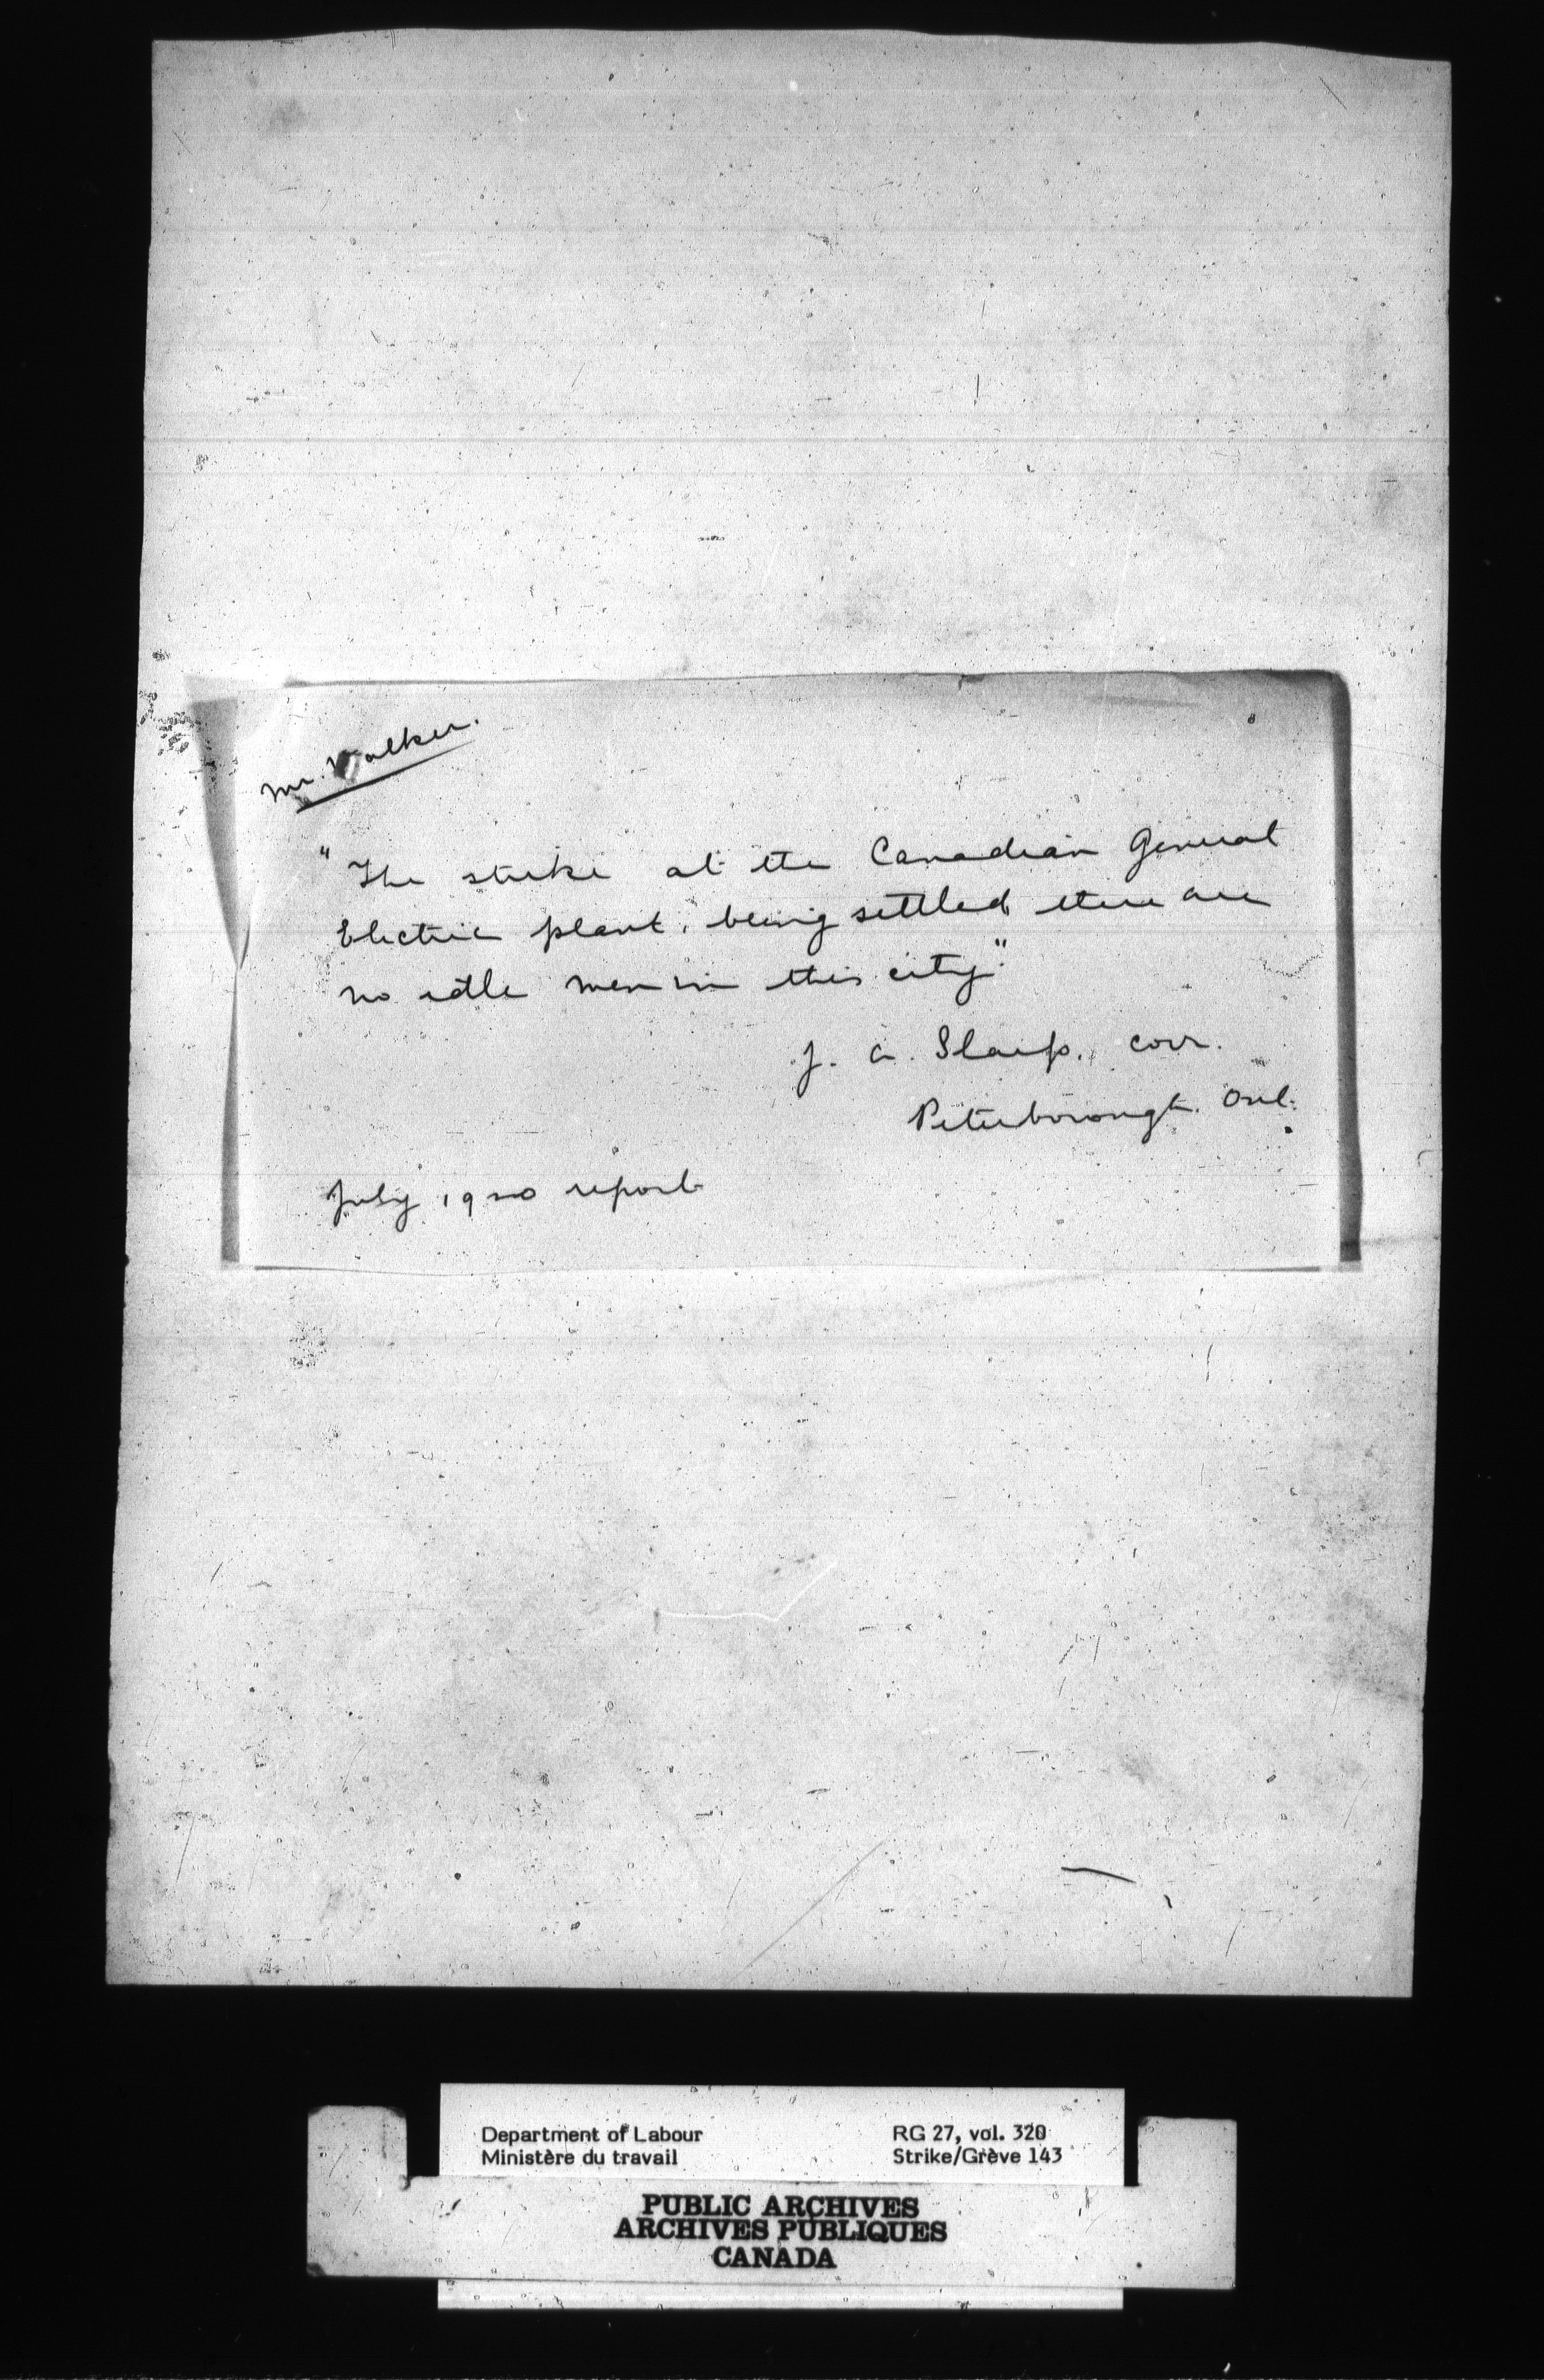 Mr. Walker.
"The strike at the Canadian General
Electric plant, being settled there are
no idle men in this city."
J. A. corr.
Peterborough. Ont.
July 1920 report
Department of Labour
Ministère du travail
RG 27, vol. 320
Strike/Grève 143
PUBLIC ARCHIVES
ARCHIVES PUBLIQUES
CANADA